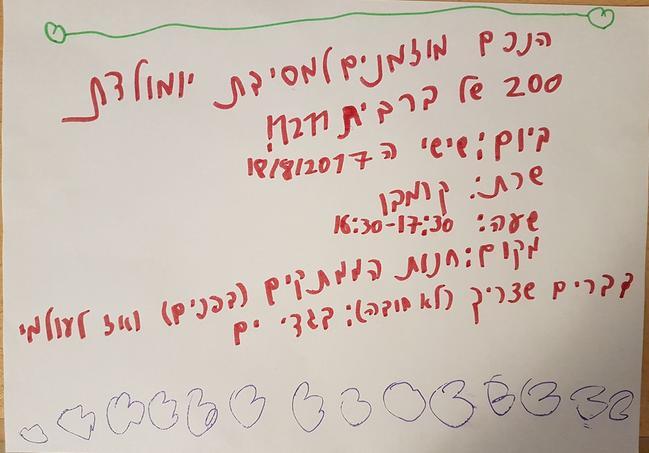 הנכם מוזמנים למסיבת יומולדת
200 של ברבית וזקן!!
ביום: שישי ה 18/8/2017
שרת: קומקן
שעה: 16:30-17:30
מקום: חנות הממתקים (בפנים) ואז לעולמי
דברים שצריך (לא חובה): בגדי ים